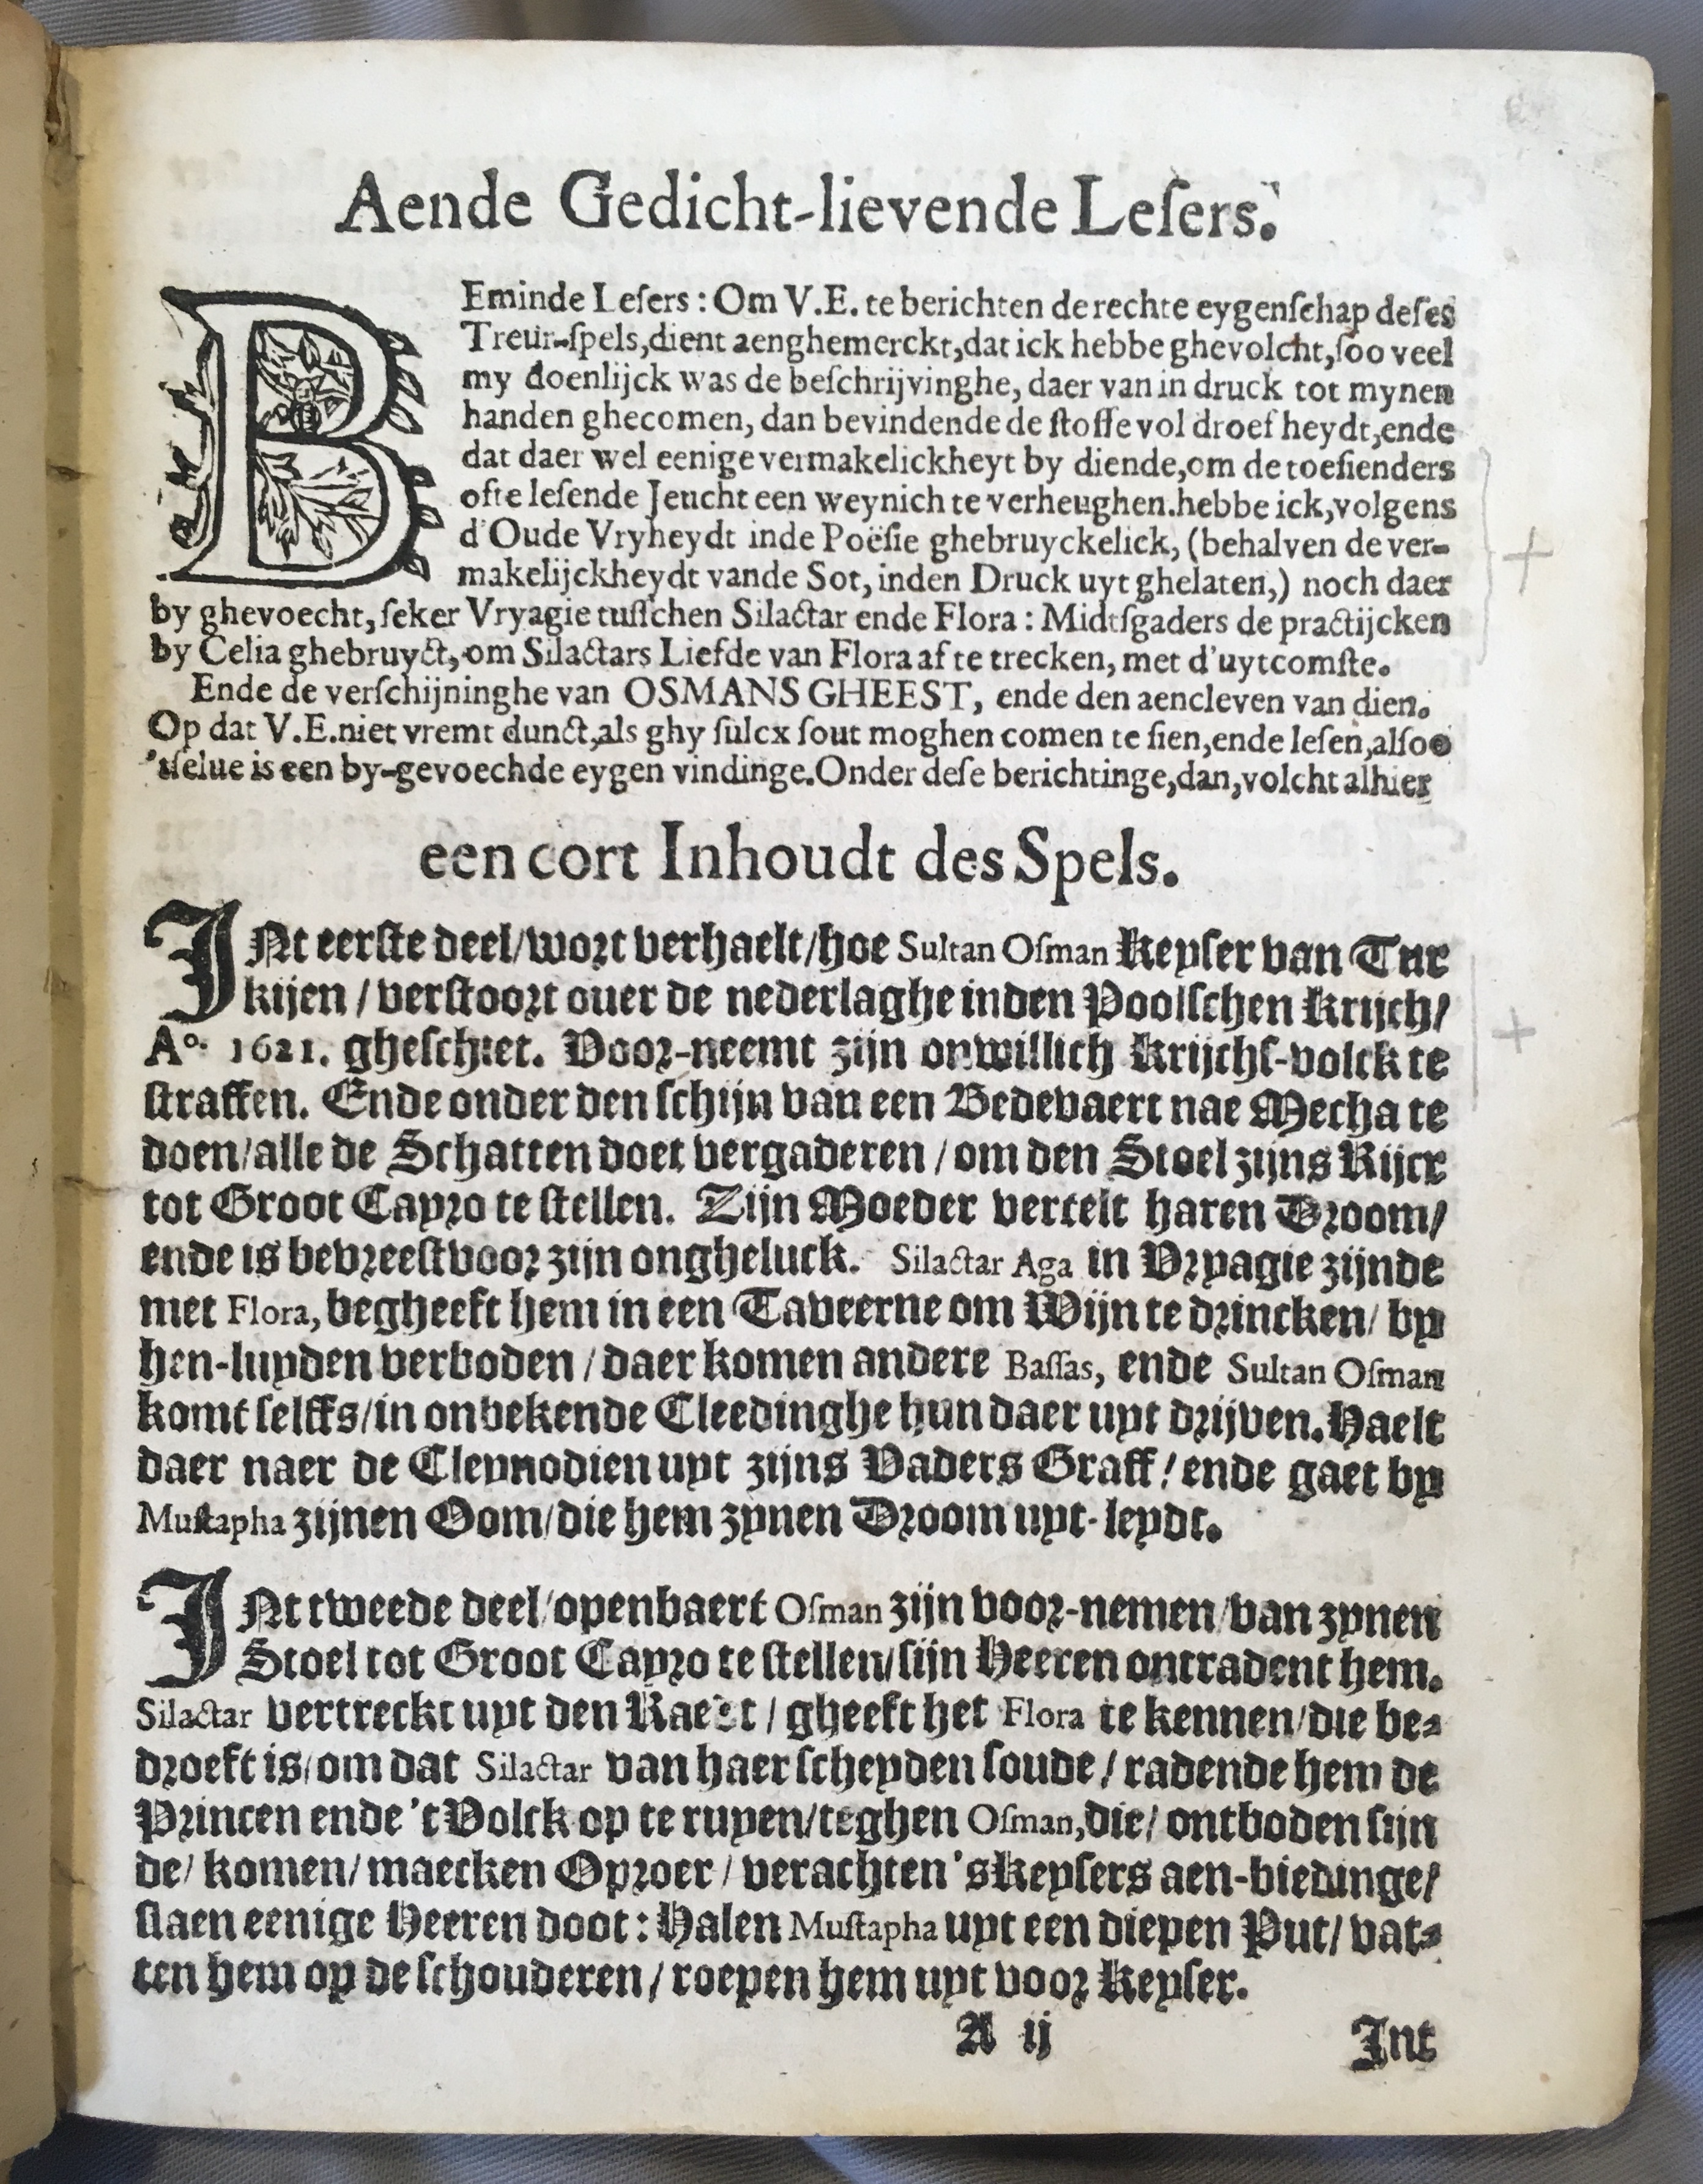 Aende Gedicht-lievende Leſers.
BEminde Leſers: Om V.E. te berichten de rechte eygenſchap deſes
Treur-ſpels, dient aenghemerckt, dat ick hebbe ghevolcht, ſoo veel
my doenlijck was de beſchrijvinghe, daer van in druck tot mynen
handen ghecomen, dan bevindende de ſtoffe vol droefheydt, ende
dat daer wel eenige vermakelickheyt by diende, om de toeſienders
ofte leſende Jeucht een weynich te verheughen. hebbe ick, volgens
d'Oude Vryheydt inde Poëſie ghebruyckelick, (behalven de ver-
makelijckheydt vande Sot, inden Druck uyt ghelaten,) noch daer
by ghevoecht, ſeker Vryagie tuſſchen Silactar ende Flora: Midtſgaders de practijcken
by Celia ghebruyct, om Silactars Liefde van Flora af te trecken, met d'uytcomſte.
Ende de verſchijninghe van OSMANS GHEEST, ende den aencleven van dien.
Op dat V.E. niet vremt dunct, als ghy ſulcx ſout moghen comen te ſien, ende leſen, alſoo
'tſelue is een by-gevoechde eygen vindinge. Onder deſe berichtinge, dan, volcht alhier
een cort Inhoudt des Spels.
INt eerſte deel/ wort verhaelt/ hoe Sultan Oſman Keyſer van Tur
kijen / verſtoort ouer de nederlaghe inden Poolſchen Krijch/
A°. 1621. gheſchiet. Voor-neemt zijn onwillich Krijchſ-volck te
ſtraffen. Ende onder den ſchijn van een Bedevaert nae Mecha te
doen/ alle de Schatten doet vergaderen / om den Stoel zijns Rijcx
tot Groot Cayro te ſtellen. Zijn Moeder vertelt haren Droom/
ende is bevreeſt voor zijn ongheluck. Silactar Aga in Vryagie zijnde
met Flora, begheeft hem in een Taveerne om Wijn te drincken/ by
hen-luyden verboden / daer komen andere Baſſas, ende Sultan Oſman
komt ſelffs/ in onbekende Cleedinghe hun daer uyt drijven. Haelt
daer naer de Cleynodien uyt zijns Vaders Graff/ ende gaet by
Muſtapha zijnen Oom/ die hem zynen Droom uyt-leydt.
INt tweede deel/ openbaert Oſman zijn voor-nemen/ van zynen
Stoel tot Groot Cayro te ſtellen/ ſijn Heeren ontradent hem.
Silactar vertreckt uyt den Raedt / gheeft het Flora te kennen/ die be-
droeft is/ om dat Silactar van haer ſcheyden ſoude / radende hem de
Princen ende 't Volck op te ruyen/ teghen Oſman, die/ ontboden ſijn
de/ komen/ maecken Oproer / verachten 's Keyſers aen-biedinge/
ſlaen eenige Heeren doot: Halen Muſtapha uyt een diepen Put/ vat-
ten hem op de ſchouderen / roepen hem uyt voor Keyſer.
A ij
Int